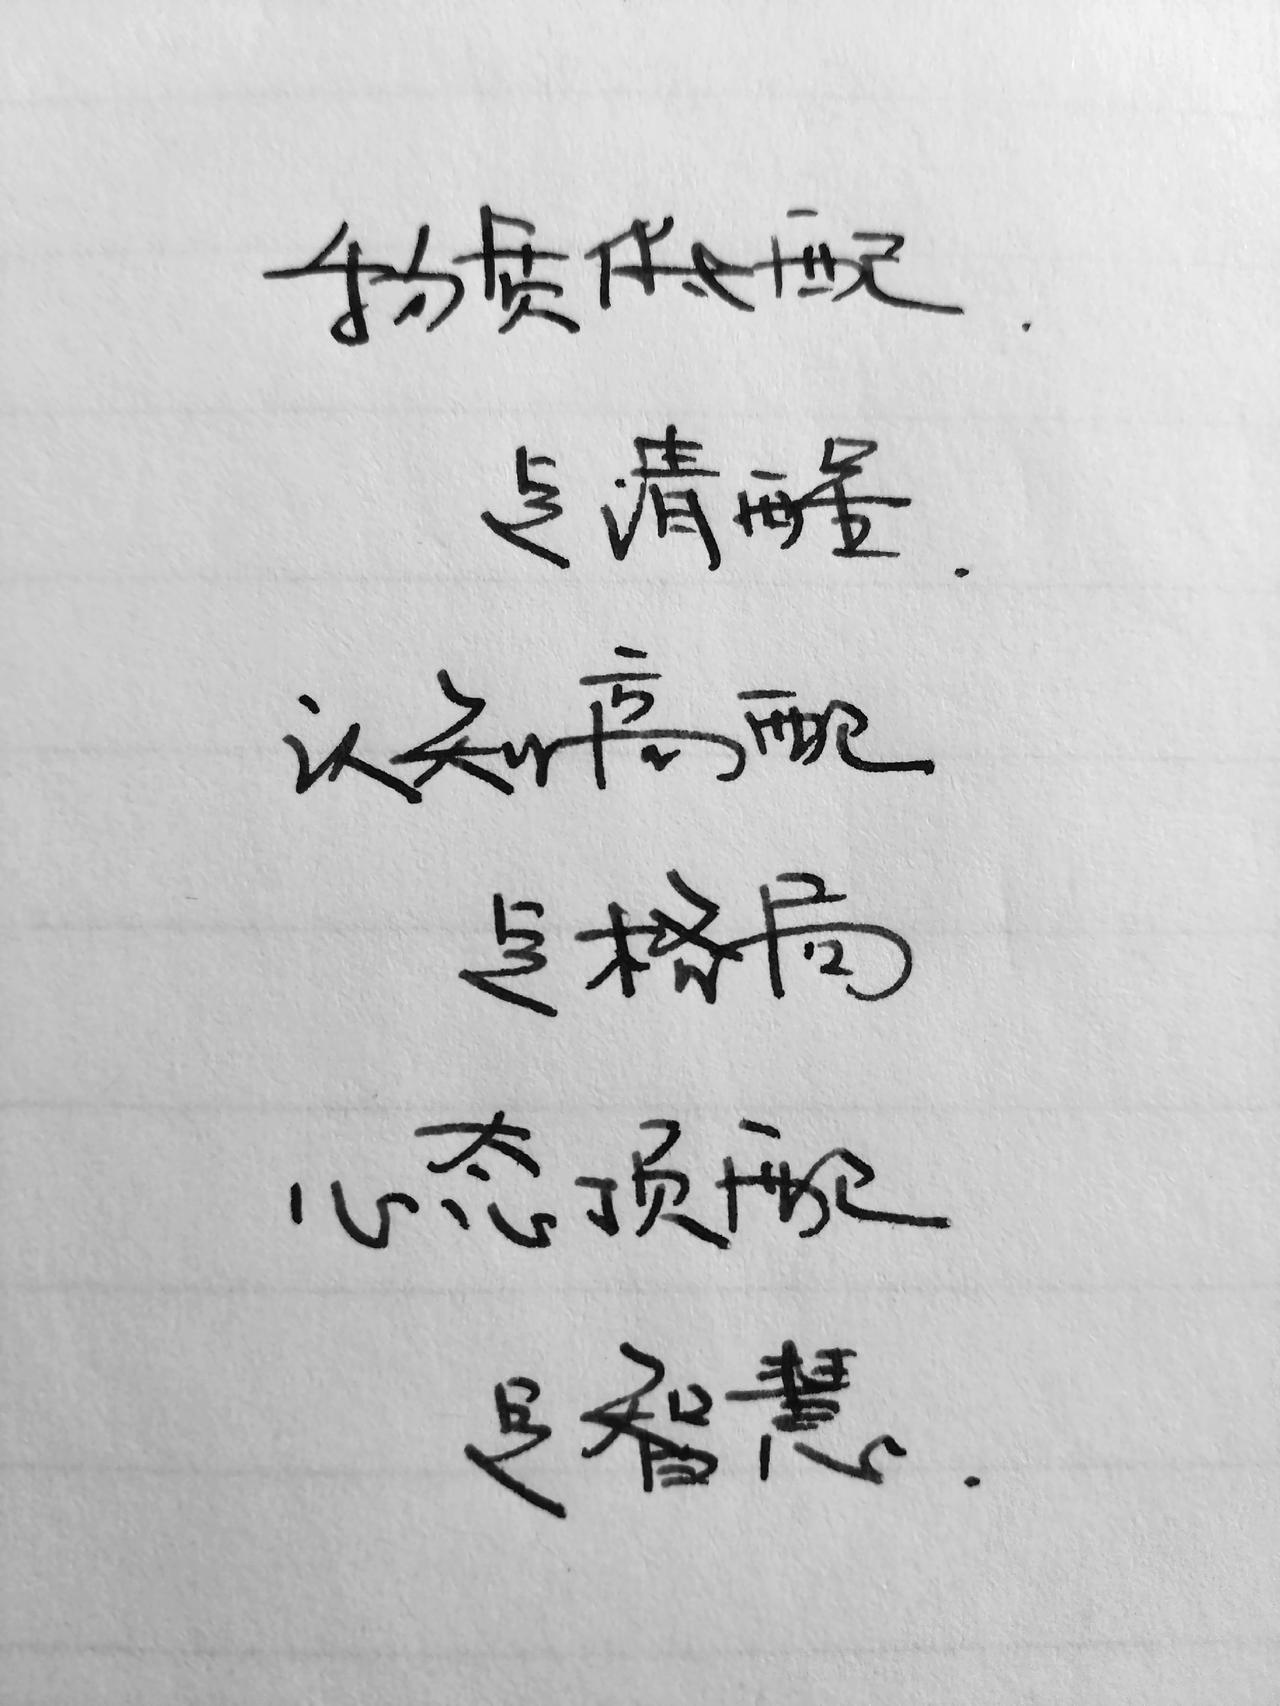 物质低配.
是清醒.
认知高配
是格局
心态顶配
是智慧.